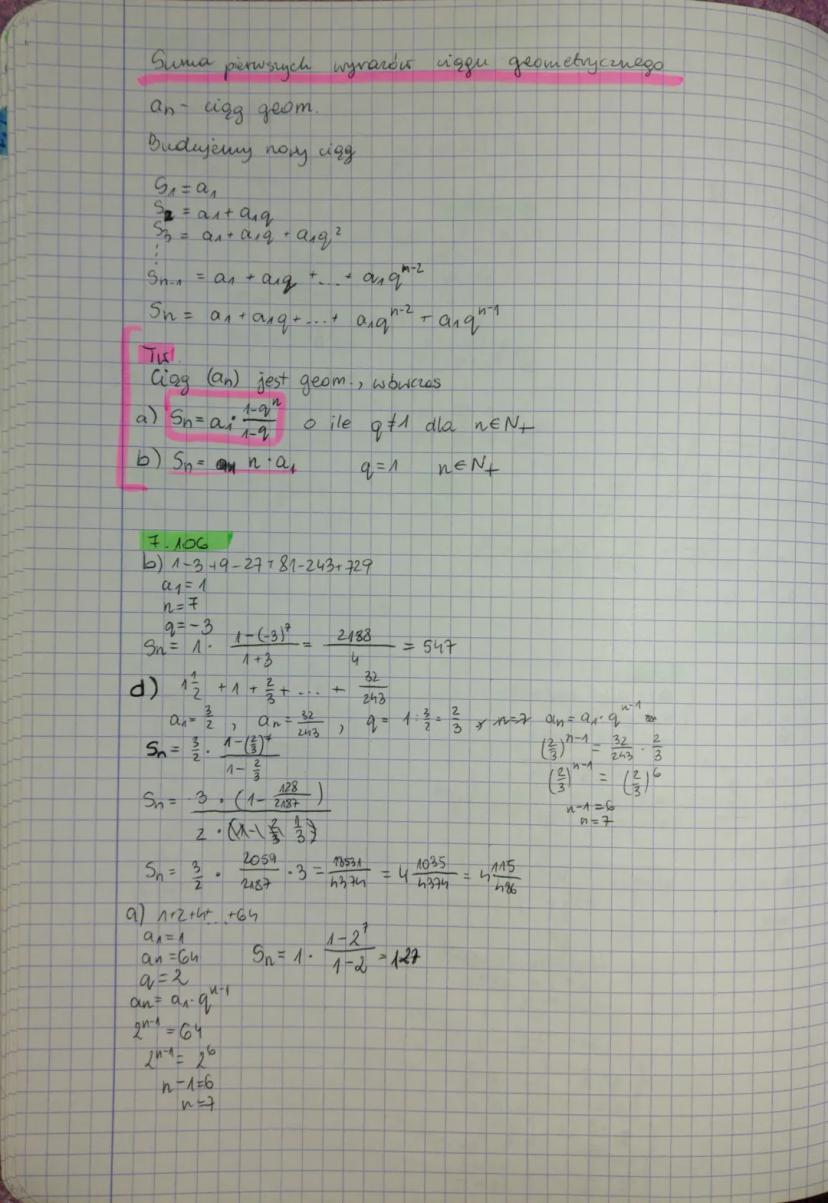 Suma pierwszych wyrazów ciągu geometrycznego
an - ciąg geom.
Budujemy nowy ciąg
S1 = a1
S2 = a1 + a1q
S3 = a1 + a1q + a1q²
⋮
Sn-1 = a1 + a1q + ... + a1q^(n-2)
Sn = a1 + a1q + ... + a1q^(n-2) + a1q^(n-1)
Tw.
Ciąg (an) jest geom., wówczas
a) Sn = a1 · (1-q^n)/(1-q) o ile q ≠ 1 dla n ∈ N+
b) Sn = n · a1 q = 1 n ∈ N+
7.106
b) 1-3+9-27+81-243+729
a1 = 1
n = 7
q = -3
Sn = 1 · (1-(-3)^7)/(1+3) = 2188/4 = 547
d) 1 1/2 + 1 + 2/3 + ... + 32/243
a1 = 3/2, an = 32/243, q = 1 : 3/2 = 2/3, n=7 an = a1 · q^(n-1)
Sn = 3/2 · (1-(2/3)^7)/(1-2/3)
(2/3)^(n-1) = 32/243 · 2/3
(2/3)^(n-1) = (2/3)^6
n-1 = 6
n = 7
Sn = 3 · (1 - 128/2187) / 2 · (1/3)
Sn = 3/2 · 2059/2187 · 3 = 18531/4374 = 4 1035/4374 = 4 115/486
a) 1+2+4+...+64
a1 = 1
an = 64 Sn = 1 · (1-2^7)/(1-2) = 127
q = 2
an = a1 · q^(n-1)
2^(n-1) = 64
2^(n-1) = 2^6
n-1 = 6
n = 7